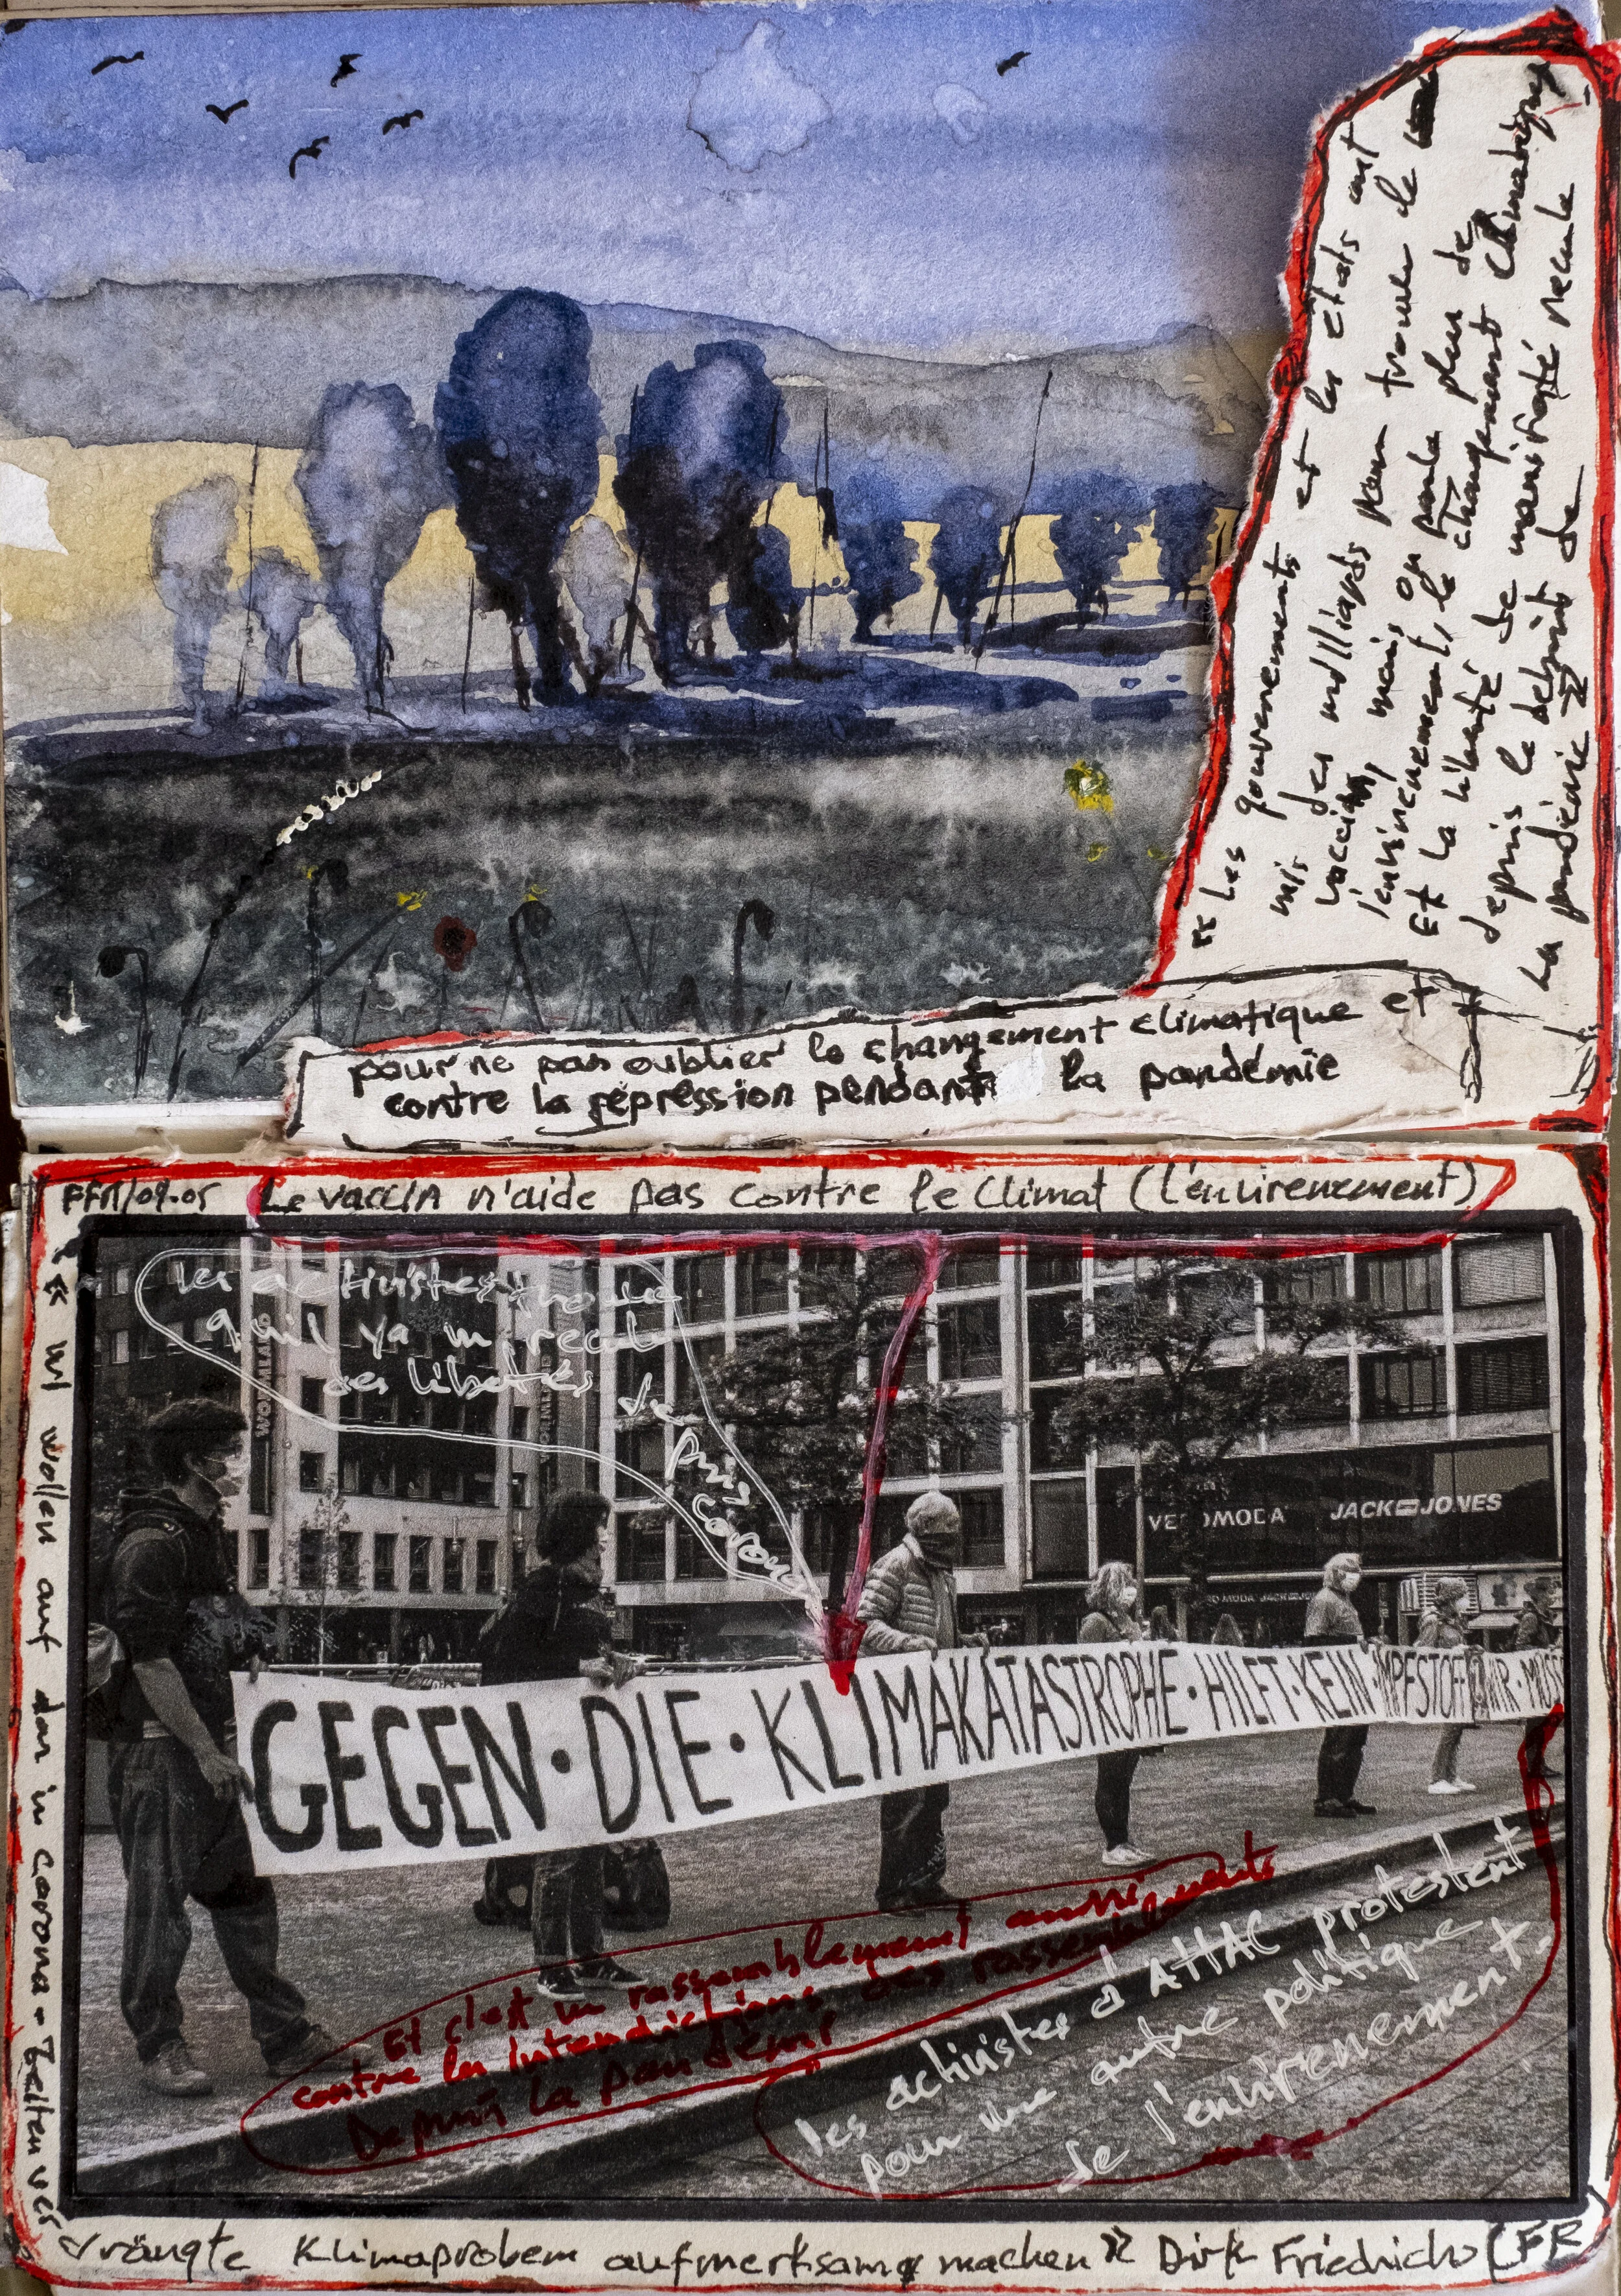 « Les gouvernements et les états ont
mis des milliards pour trouver le
vaccin, mais on parle plus de
l'envirenement, le changement climatique
Et la liberté de manifesté recule
depuis le debut de
la pandémie »
pour ne pas oublier le changement climatique et
contre la répression pendant la pandémie
FFM/09.05 Le vaccin n'aide pas contre le Climat (l'envirenement)
les activistes trouve
qu'il ya un recule
des libertés de
puis
corona
VERO MODA JACK JONES
GEGEN · DIE · KLIMAKATASTROPHE · HILFT · KEIN · IMPFSTOFF WIR · MÜSS
Et c'est un rassemblement aussi
contre les interdictions des rassemblements
Depuis la pandémi
les activistes d'ATTAC protestent
pour une autre politique
de l'envirenement.
« Wi wollen auf dar in corona - Zeiten ver
drängte Klimaprobem aufmerksam machen » Dirk Friedrichs (FR